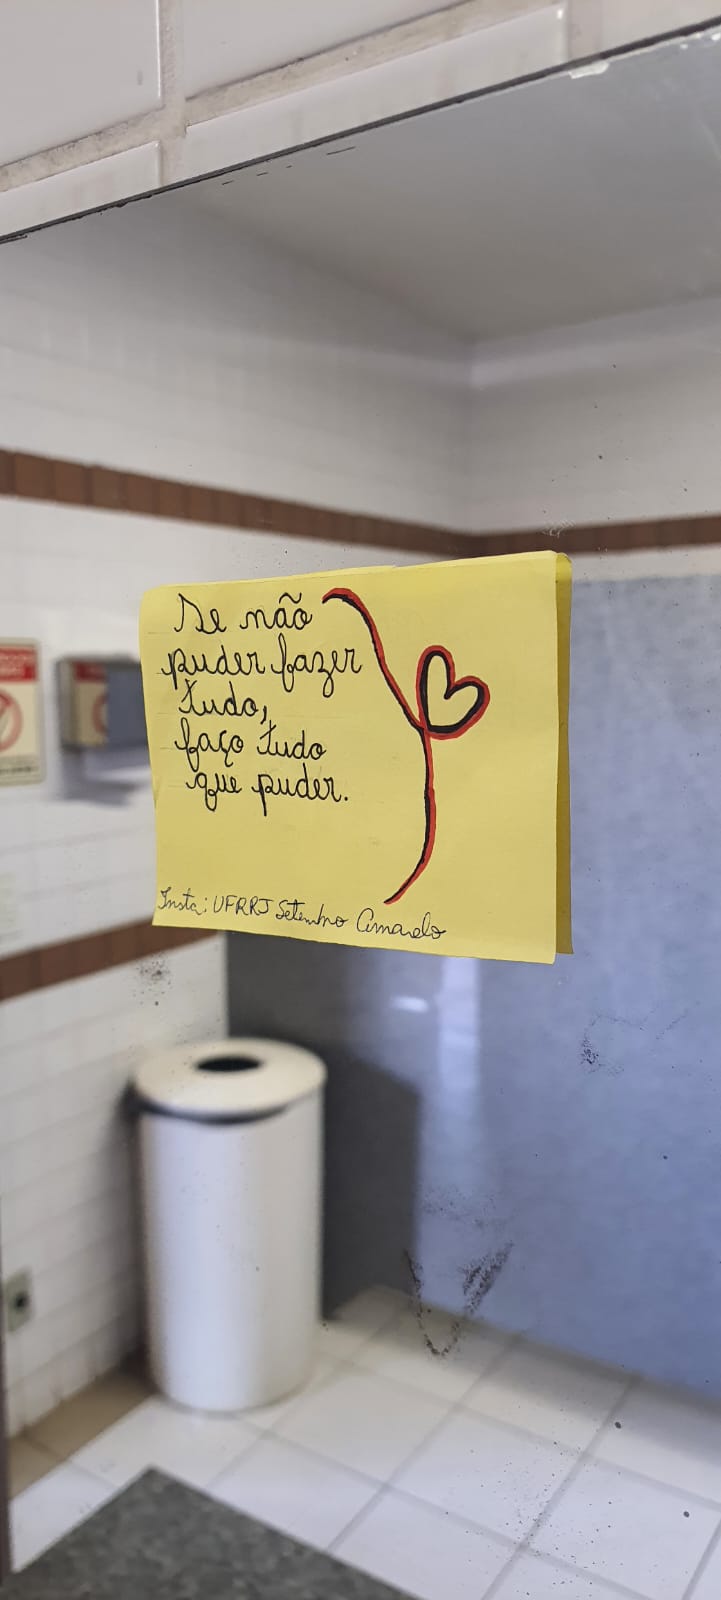 Se não
puder fazer
tudo,
faço tudo
que puder.
Insta: UFRRJ Setembro Amarelo